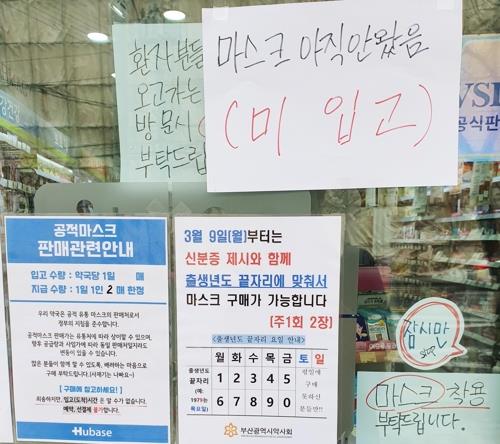 마스크 아직안왔음
(미 입고)
환자분들
오고가는
방문시
부탁드립
VSL
공식판
공적마스크
판매관련안내
입고 수량 : 약국당 1일 매
지급 수량 : 1일 1인 2 매 한정
우리 약국은 공적 유통 마스크의 판매처로서
정부의 지침을 준수합니다.
공적마스크 판매가는 유통처에 따라 상이할 수 있으며,
향후 공급량과 사입가에 따라 동일 판매처일지라도
변동이 있을 수 있습니다.
많은 분들이 함께 할 수 있도록, 배려하는 마음으로
구매 부탁드립니다. (사재기는 나빠요~)
[구매에 참고하세요!]
죄송하지만, 입고(도착)시간은 알 수가 없습니다.
예약, 선결제 불가합니다.
Hubase
3월 9일(월)부터는
신분증 제시와 함께
출생년도 끝자리에 맞춰서
마스크 구매가 가능합니다
[주1회 2장]
<출생년도 끝자리 요일 안내>
월 화 수 목 금 토 일
출생년도
끝자리
(예:
1979는
목요일)
1 2 3 4 5
6 7 8 9 0
평일에
구매
못하신
분들만!!
부산광역시약사회
잠시만
STOP
마스크 착용
부탁드립니다.